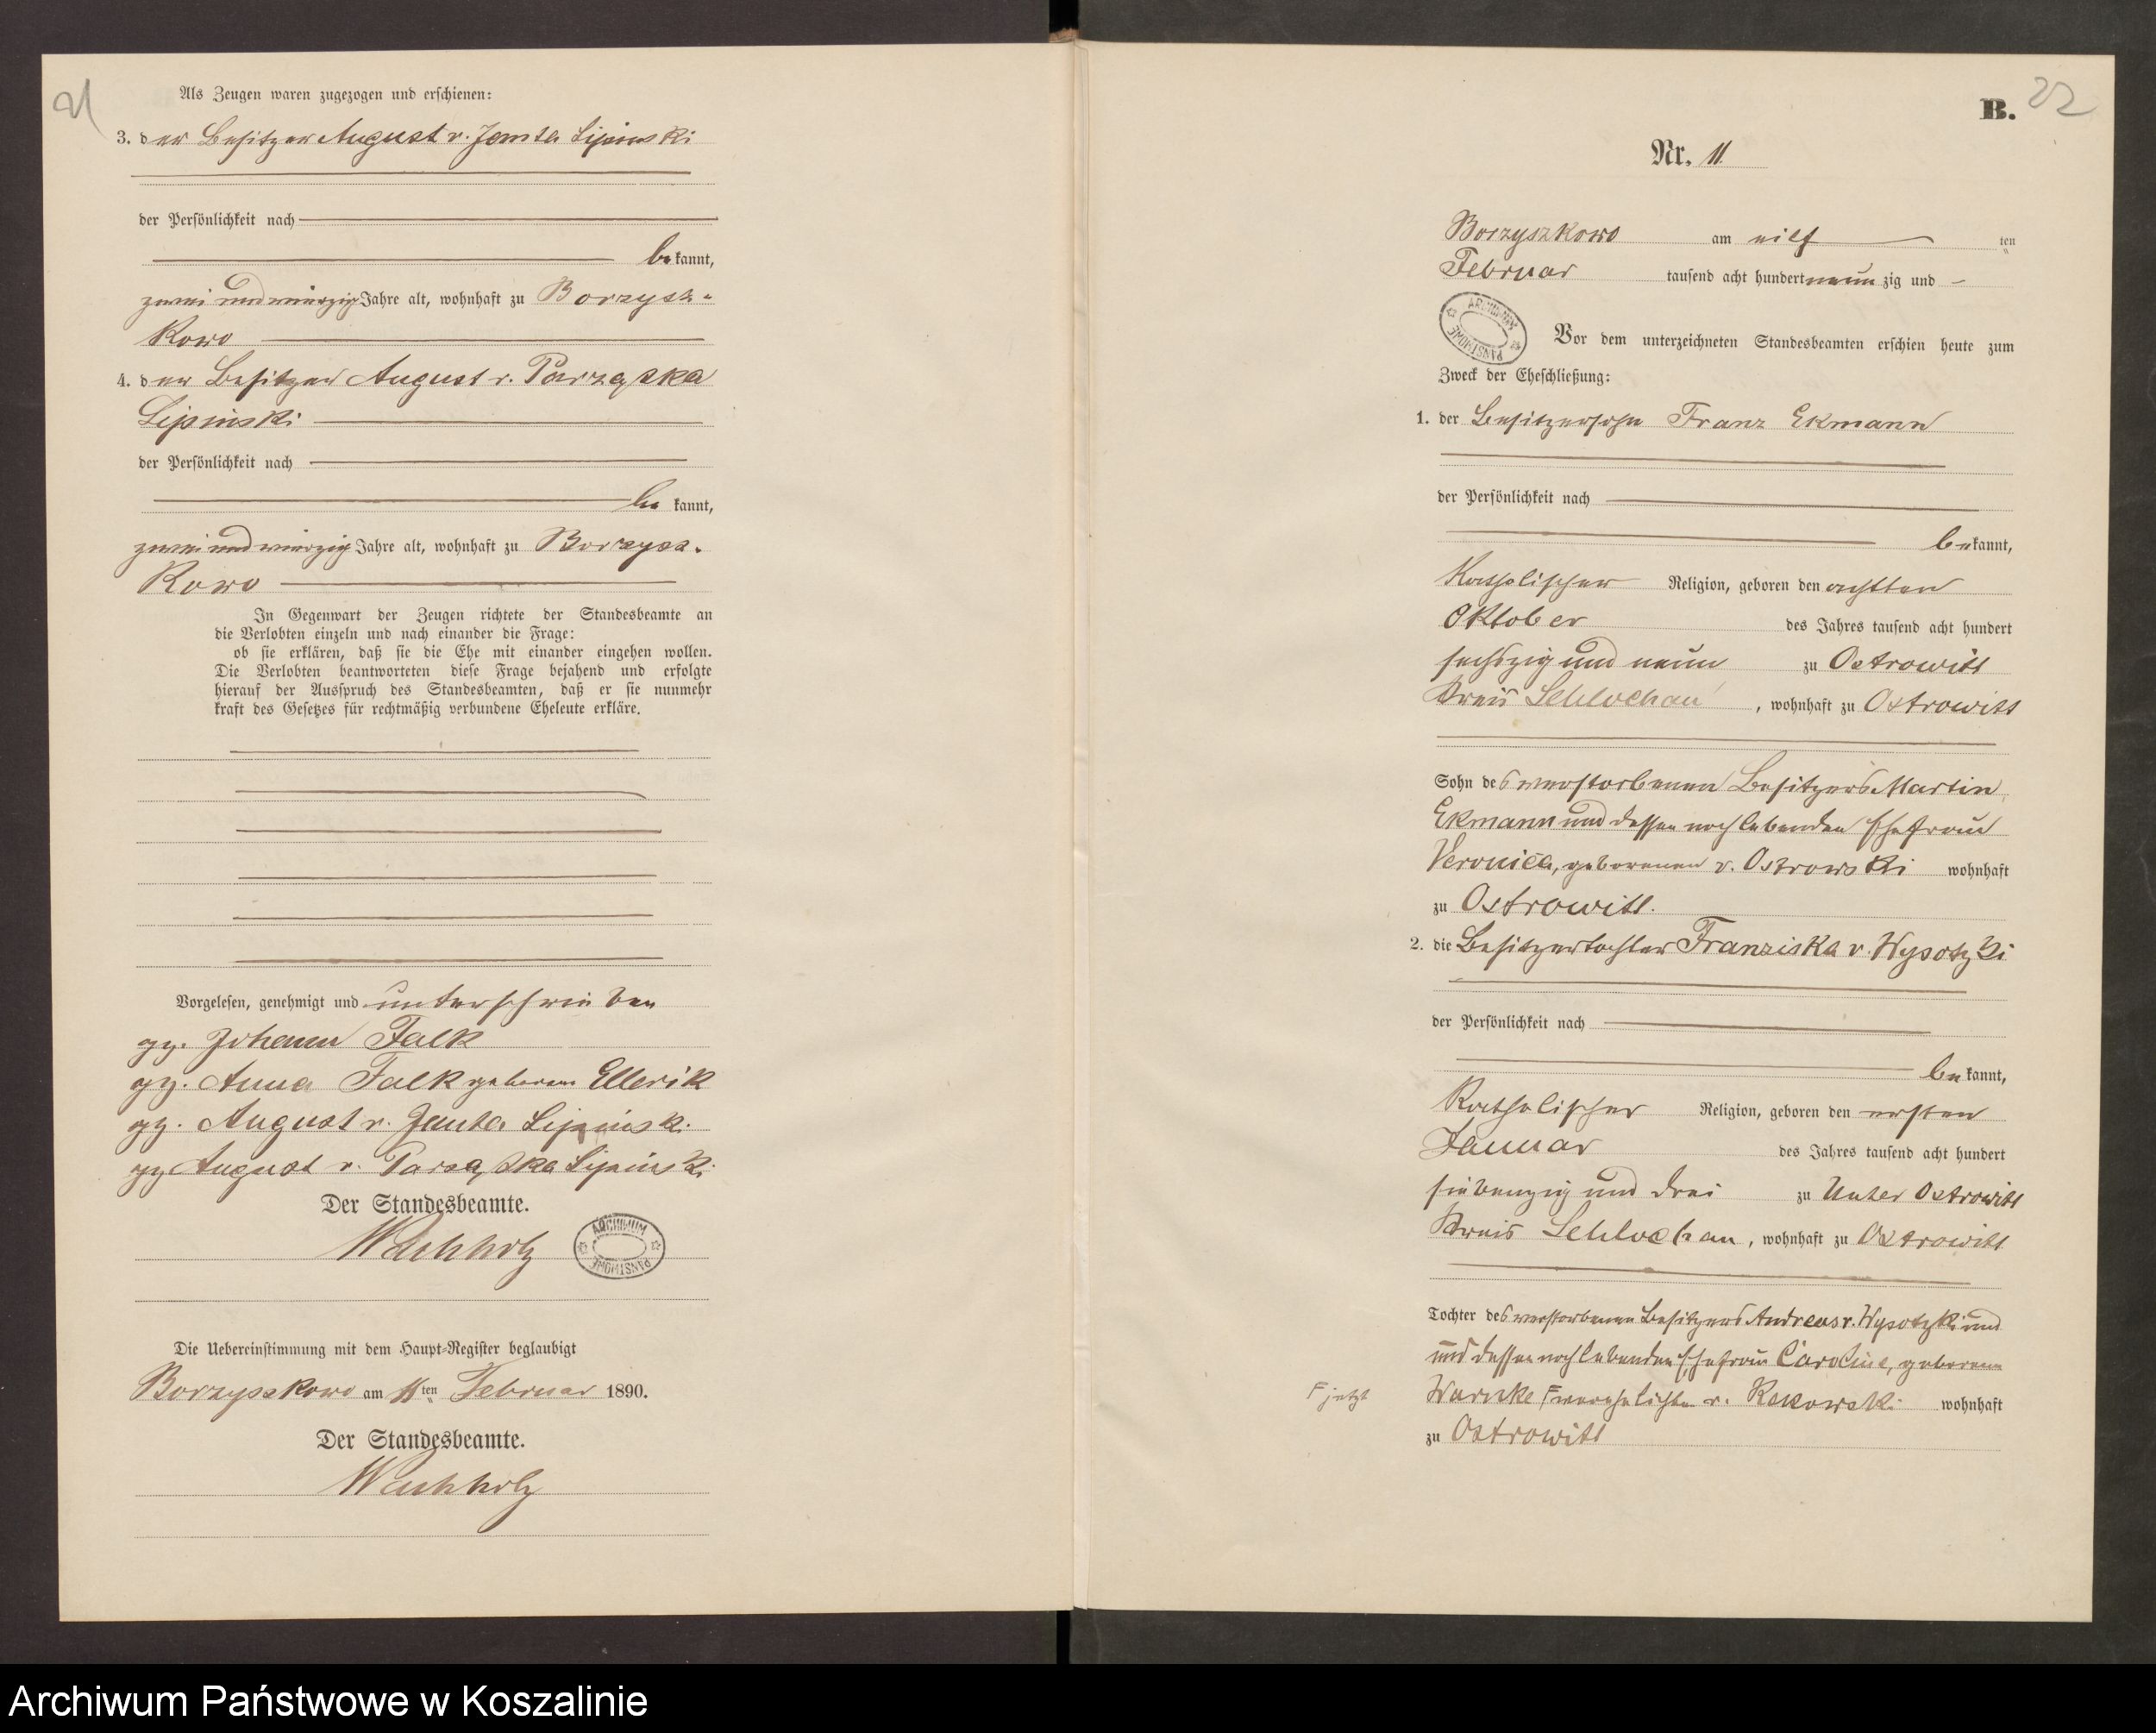 21
Als Zeugen waren zugezogen und erschienen:
3. der Besitzer August v. Jemta Lipinski
der Persönlichkeit nach
bekannt,
zwei und vierzig Jahre alt, wohnhaft zu Borzysz-
kowo
4. der Besitzer August v. Parzaska
Lipinski
der Persönlichkeit nach
be kannt,
zwei und vierzig Jahre alt, wohnhaft zu Borzysz-
kowo
In Gegenwart der Zeugen richtete der Standesbeamte an
die Verlobten einzeln und nach einander die Frage:
ob sie erklären, daß sie die Ehe mit einander eingehen wollen.
Die Verlobten beantworteten diese Frage bejahend und erfolgte
hierauf der Ausspruch des Standesbeamten, daß er sie nunmehr
kraft des Gesetzes für rechtmäßig verbundene Eheleute erkläre.
Vorgelesen, genehmigt und unterschrieben
gz. Johann Falk
gz. Anna Falk geborene Ellerik
gz. August v. Jemta Lipinski
gz. August v. Parzaska Lipinski
Der Standesbeamte.
Wachholz
ARCHIWUM PAŃSTWOWE
Die Uebereinstimmung mit dem Haupt-Register beglaubigt
Borzyszkowo am 11ten Februar 1890.
Der Standesbeamte.
Wachholz
B. 22
Nr. 11.
Borzyszkowo am eilf ten
Februar tausend acht hundert neun zig und
ARCHIWUM PAŃSTWOWE
Vor dem unterzeichneten Standesbeamten erschien heute zum
Zweck der Eheschließung:
1. der Besitzersohn Franz Ekmann
der Persönlichkeit nach
bekannt,
Katholischer Religion, geboren den achtten
Oktober des Jahres tausend acht hundert
sechszig und neun zu Ostrowitt
Kreis Schlochau, wohnhaft zu Ostrowitt
Sohn des verstorbenen Besitzers Martin
Ekmann und dessen noch lebenden Ehefrau
Veronica, geborenen v. Ostrowski wohnhaft
zu Ostrowitt.
2. die Besitzertochter Franziska v. Wysotzki
der Persönlichkeit nach
be kannt,
Katholischer Religion, geboren den ersten
Januar des Jahres tausend acht hundert
siebenzig und drei zu Unter Ostrowitt
Kreis Schlochau, wohnhaft zu Ostrowitt
Tochter des verstorbenen Besitzers Andreas v. Wysotzki und
und dessen noch lebenden Ehefrau Caroline, geborene
F jetzt
Warnke F verehelichte v. Rekowski wohnhaft
zu Ostrowitt
Archiwum Państwowe w Koszalinie